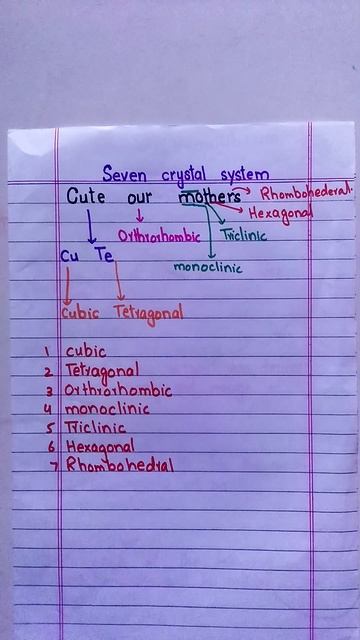 Seven crystal system
Cute our mothers Rhombohederal.
Hexagonal
Orthrorhombic Triclinic
Cu Te
monoclinic
Cubic Tetragonal
1 cubic
2 Tetragonal
3 Orthrorhombic
4 monoclinic
5 Triclinic
6 Hexagonal
7 Rhombohedral